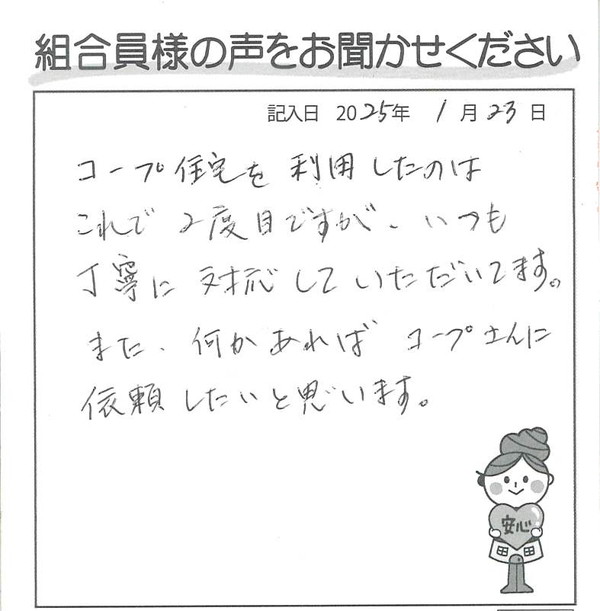 組合員様の声をお聞かせください
記入日 2025年 1月23日
コープ住宅を利用したのは
これで2度目ですが、いつも
丁寧に対応していただいてます。
また、何かあれば コープさんに
依頼したいと思います。
安心